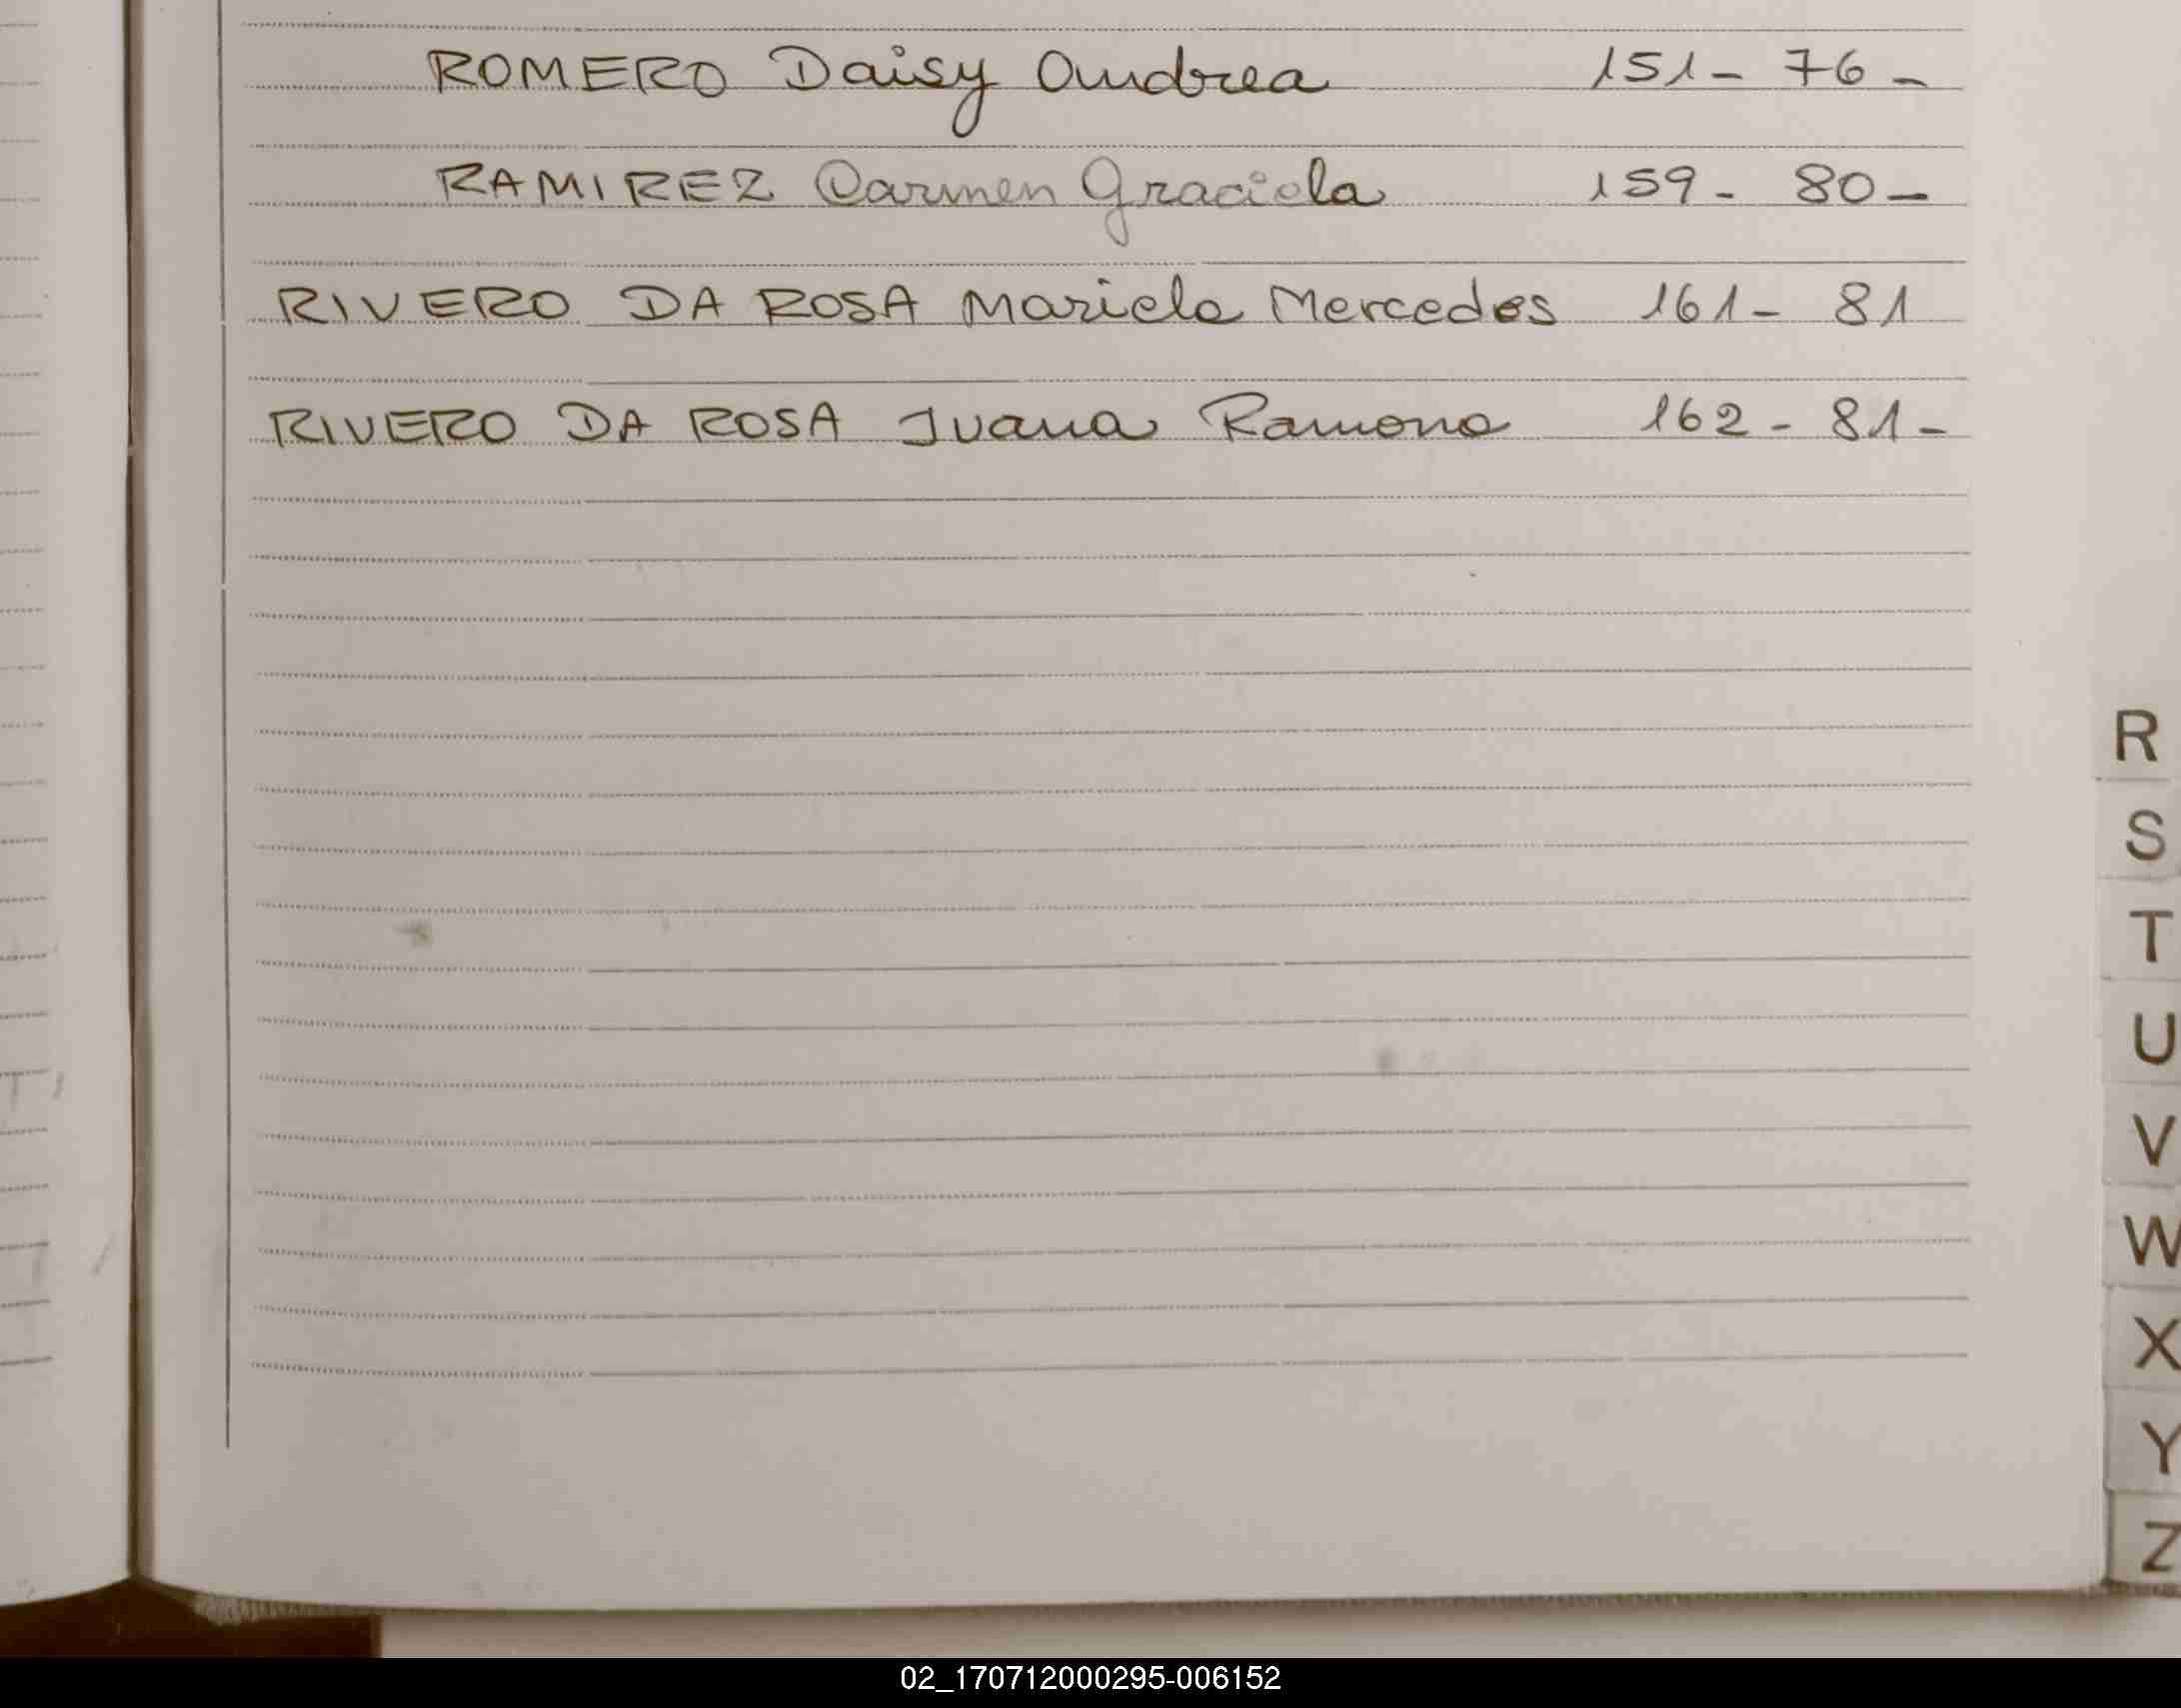 ROMERO Daisy Andrea 151 - 76 -
RAMIREZ Carmen Graciela 159 - 80 -
RIVERO DA ROSA Mariela Mercedes 161 - 81
RIVERO DA ROSA Juana Ramona 162 - 81 -
R
S
T
U
V
W
X
Y
Z
02_170712000295-006152